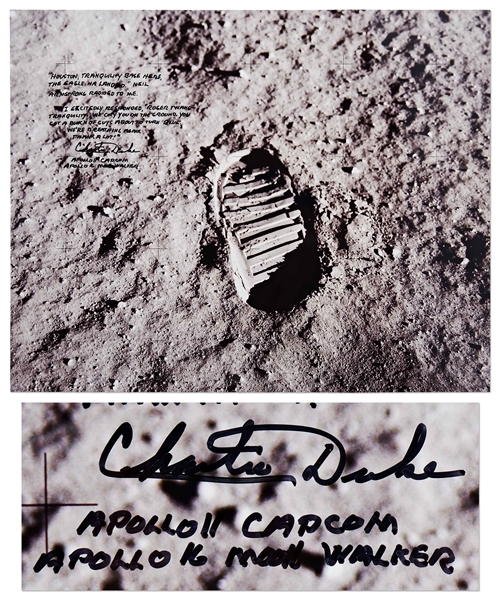 "HOUSTON, TRANQUILITY BASE HERE,
THE EAGLE HA LANDED," NEIL
ARMSTRONG RADIOED TO ME.
I EXCITEDLY RESPONDED, "ROGER TWANG...
TRANQUILITY, WE COPY YOU ON THE GROUND. YOU
GOT A BUNCH OF GUYS ABOUT TO TURN BLUE.
WE'RE BREATHING AGAIN.
THANKS A LOT!"
Charlie Duke
APOLLO 11 CAPCOM
APOLLO 16 MOON WALKER
Charlie Duke
APOLLO 11 CAPCOM
APOLLO 16 MOON WALKER